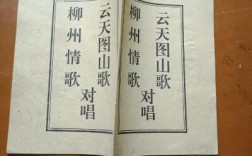 云天图山歌
柳州情歌
对唱
云天图山歌
柳州情歌
对唱